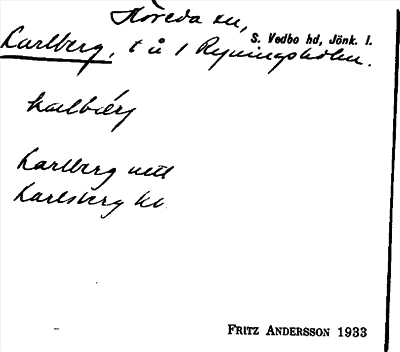 Höreda sn,
S. Vedbo hd, Jönk. l.
Karlberg, t å 1 Ryningsholm.
kalbærj
Karlberg
Karlsberg kb
FRITZ ANDERSSON 1933